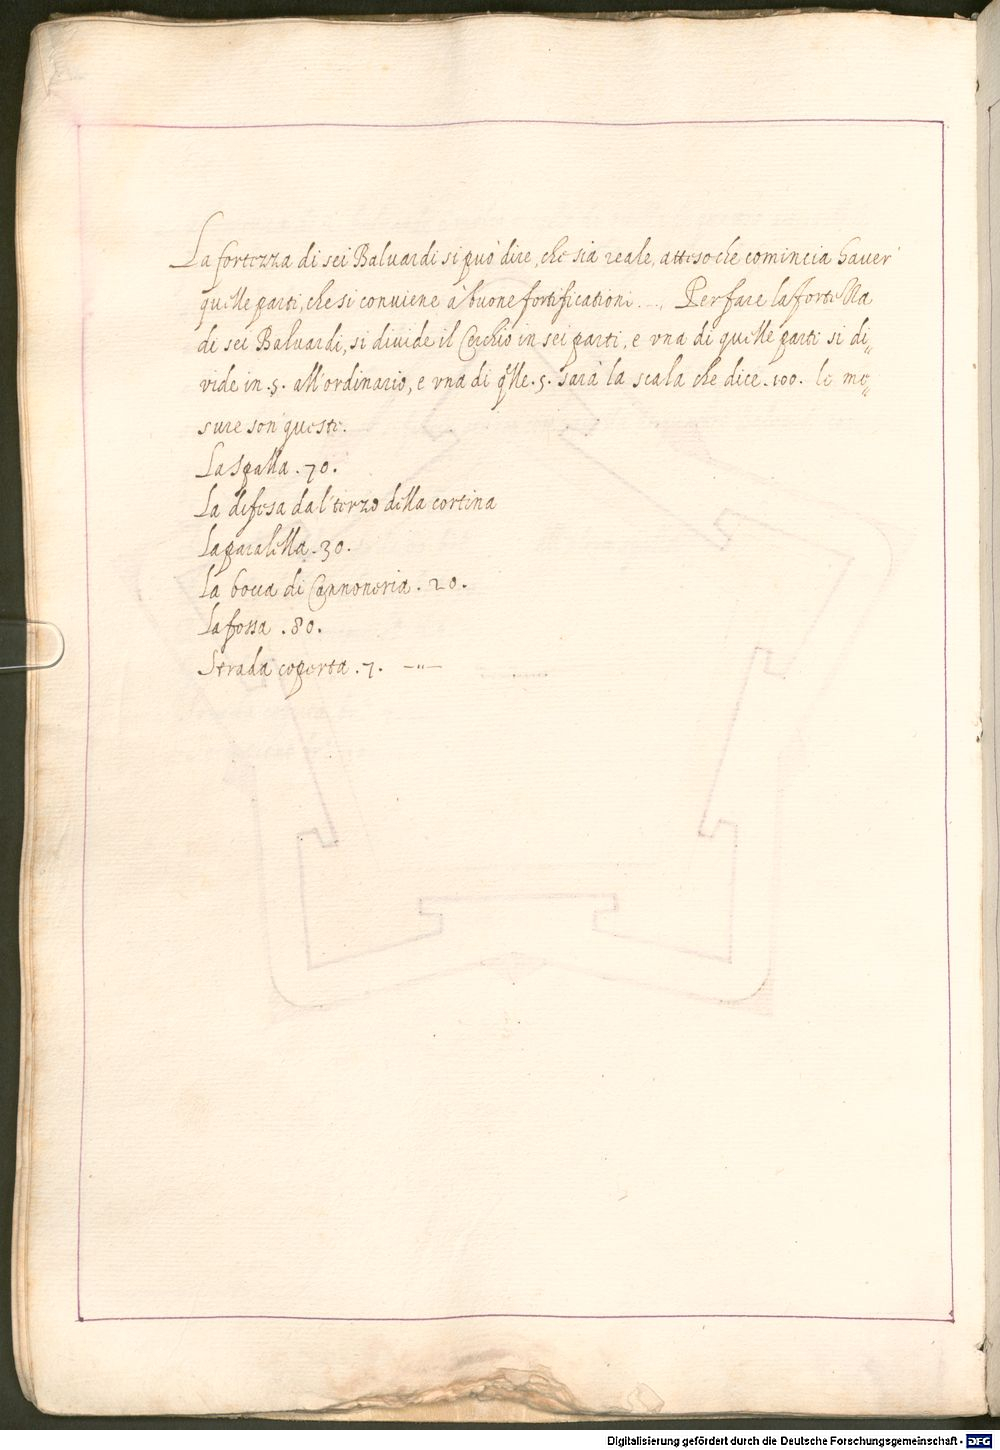 La fortezza di sei Baluardi si può dire, che sia reale, atteso che comincia haver
quelle parti, che si conviene à buone fortificationi. Per fare la fortezza
di sei Baluardi, si divide il Cerchio in sei parti, e vna di quelle parti si di„
vide in .5. all'ordinario, e vna di qlle .5. sarà la scala che dice .100. le me„
sure son queste.
La Spalla .70.
La difesa dal terzo della cortina
La paralella .30.
La bocca di Cannoneria .20.
La fossa .80.
Strada coperta .7. —"—
Digitalisierung gefördert durch die Deutsche Forschungsgemeinschaft - DFG